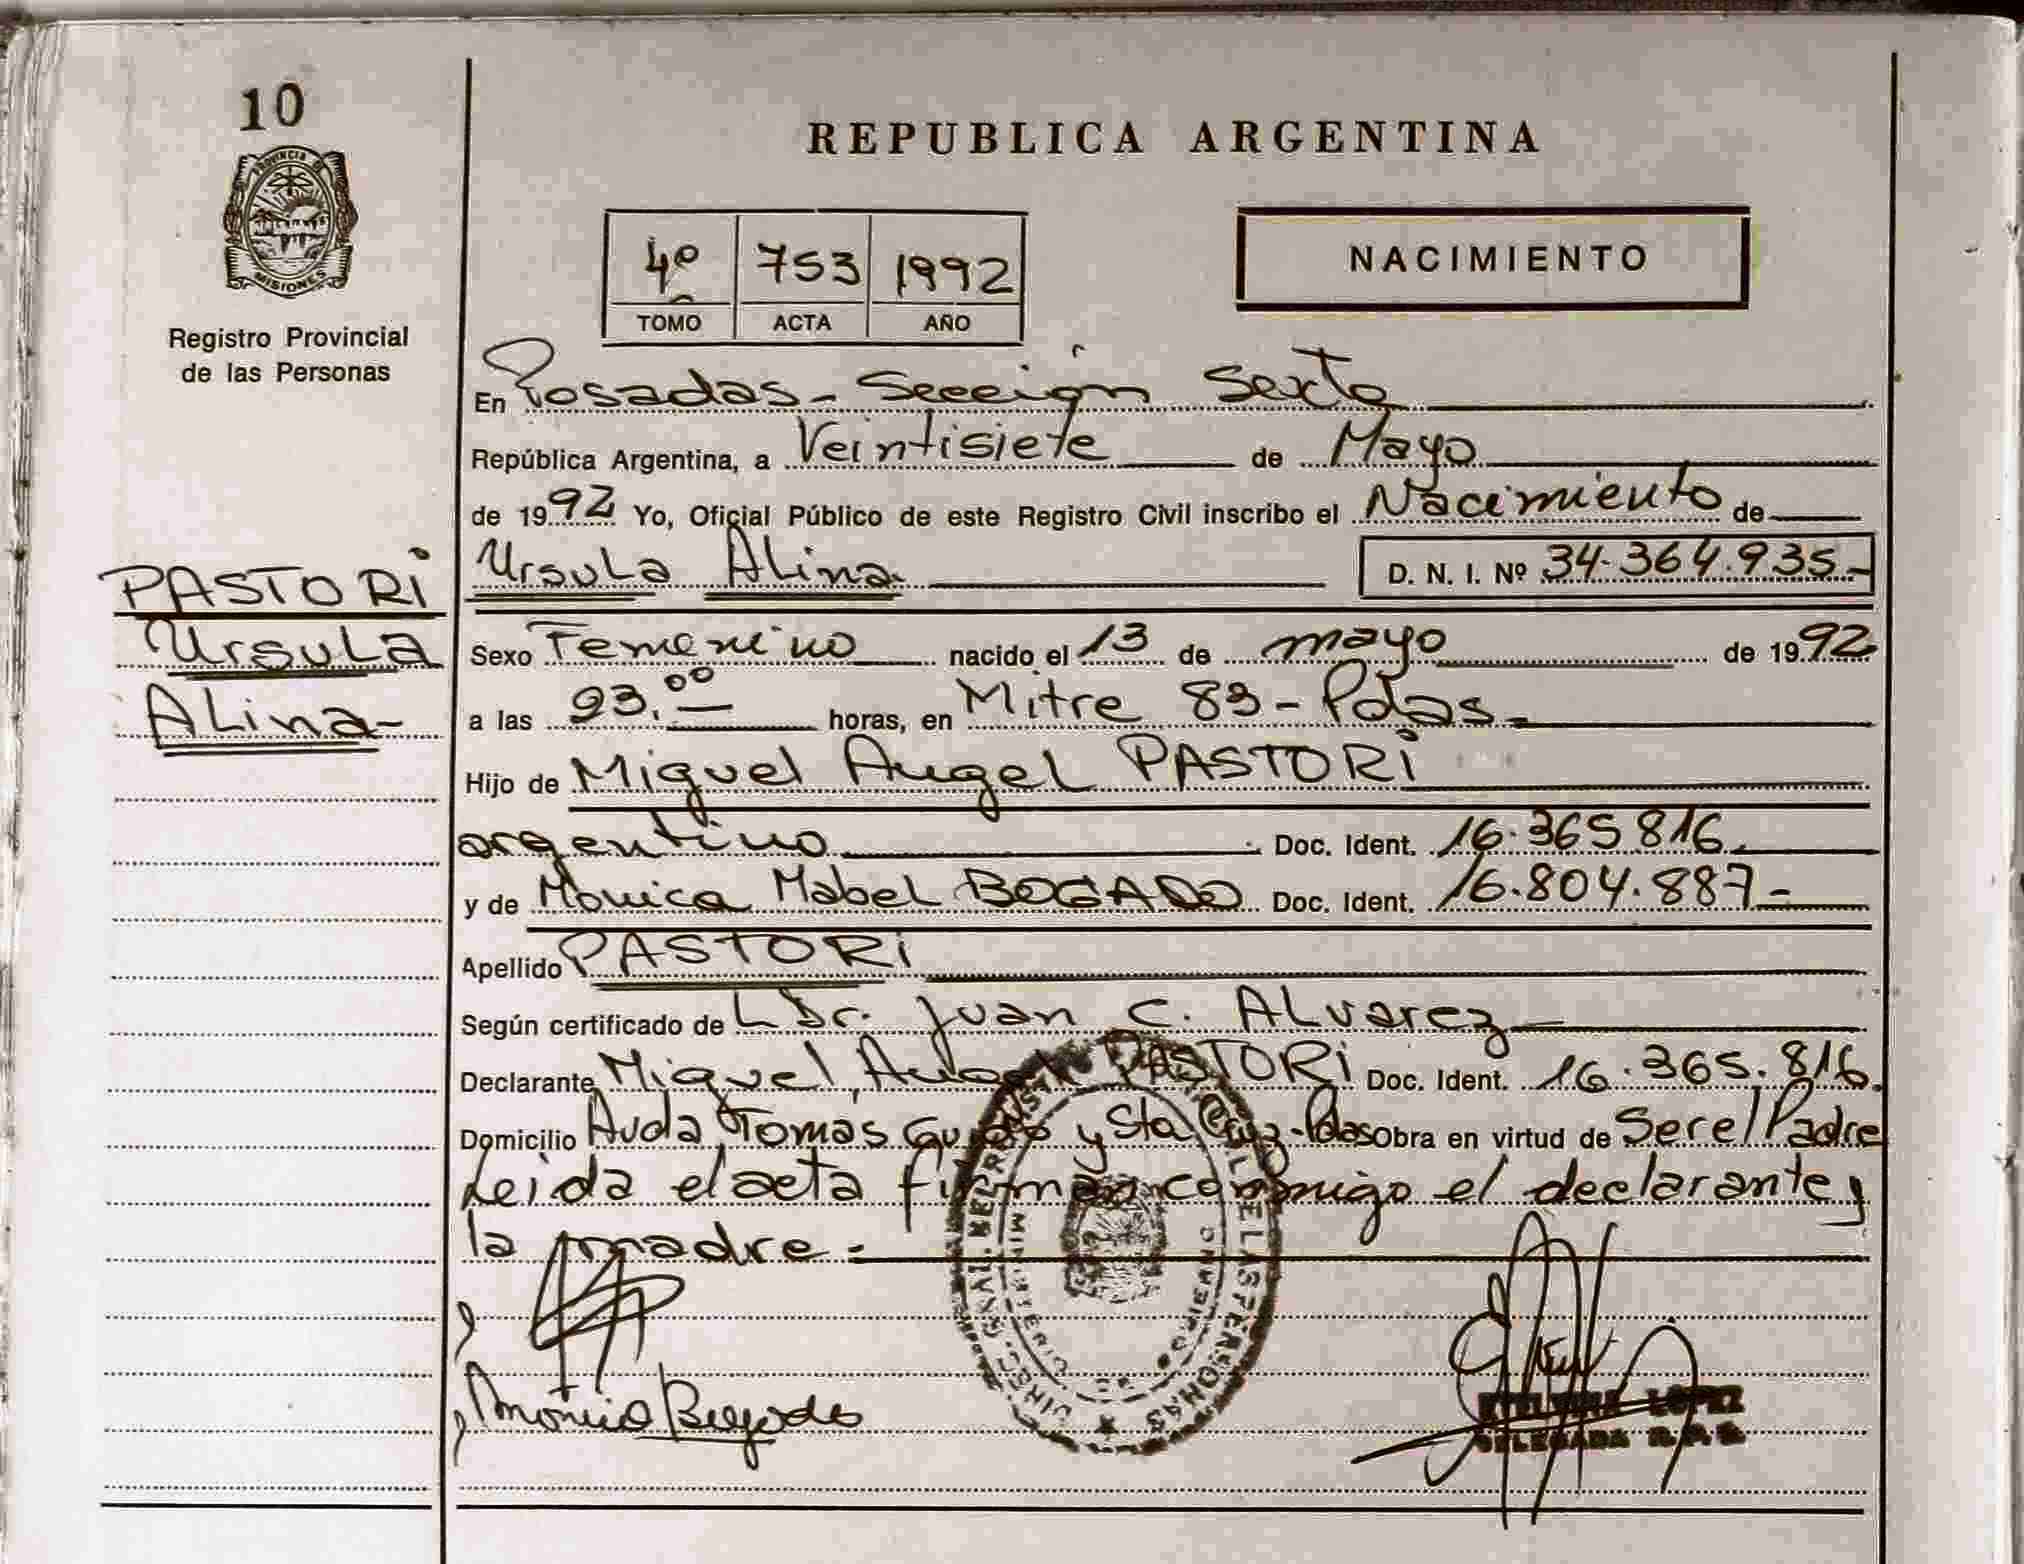 10
PROVINCIA DE
MISIONES
Registro Provincial
de las Personas
PASTORI
Ursula
Alina-
REPUBLICA ARGENTINA
4º 753 1992
TOMO ACTA AÑO
NACIMIENTO
En Posadas - Sección Sexta
República Argentina, a Veintisiete de Mayo
de 1992 Yo, Oficial Público de este Registro Civil inscribo el Nacimiento de
Ursula Alina D. N. I. Nº 34.364.935.-
Sexo Femenino nacido el 13 de mayo de 1992
a las 23.00 horas, en Mitre 83 - Pdas.
Hijo de Miguel Angel PASTORI
argentino Doc. Ident. 16.365.816.
y de Monica Mabel BOGADO Doc. Ident. 16.804.887-
Apellido PASTORI
Según certificado de Dr. Juan C. Alvarez
Declarante Miguel Angel PASTORI Doc. Ident. 16.365.816.
Domicilio Avda Tomás Guido y Sta Cruz - Pdas Obra en virtud de Ser el Padre
Leida el acta firman conmigo el declarante y
la madre.-
LOPEZ
DELEGADA R. P. P.